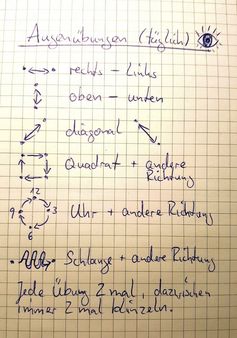 Augenübungen (täglich)
rechts – links
oben – unten
diagonal
Quadrat + andere
Richtung
12
9 3 Uhr + andere Richtung
6
Schlange + andere Richtung
Jede Übung 2 mal, dazwischen
immer 2 mal blinzeln.